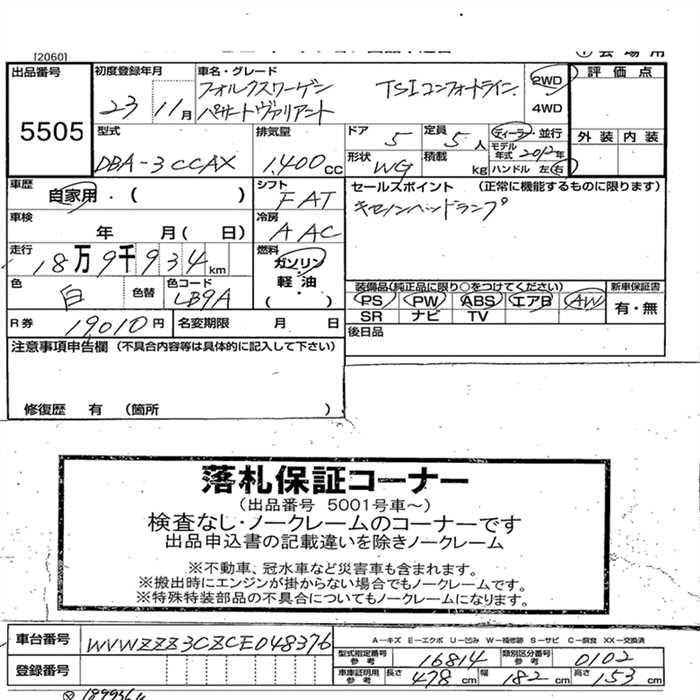 [2060]
出品番号
5505
初度登録年月
23 11月
車名・グレード
フォルクスワーゲン TSIコンフォートライン
パサートヴァリアント
2WD
4WD
評価点
外装 内装
型式
DBA-3CCAX
排気量
1.400 CC
ドア 5
定員 5人
形状 WG
積載 kg
ディーラー・並行
モデル年式 2012年
ハンドル 左・右
車歴
自家用・( )
シフト
FAT
車検
年 月( 日)
冷房
AAC
セールスポイント (正常に機能するものに限ります)
キセノンヘッドランプ
走行
18万9千934km
燃料
ガソリン
軽油・
( )
色
白
色替
色コード
LB9A
装備品(純正品に限り○をつけてください)
PS PW ABS エアB AW
SR ナビ TV
新車保証書
有・無
R券 19,010円
名変期限 月 日
後日品
注意事項申告欄 (不具合内容等は具体的に記入して下さい)
修復歴 有 (箇所 )
落札保証コーナー
(出品番号 5001号車~)
検査なし・ノークレームのコーナーです
出品申込書の記載違いを除きノークレーム
※不動車、冠水車など災害車も含まれます。
※搬出時にエンジンが掛からない場合でもノークレームです。
※特殊特装部品の不具合についてもノークレームになります。
車台番号 WVWZZZ3CZCE048376
A-キズ E-エクボ U-凹み W-補修跡 S-サビ C-腐食 XX-交換済
型式指定番号 参考 16814
類別区分番号 参考 0102
登録番号
車庫証明用 参考 長さ 478cm 幅 182cm 高さ 153cm